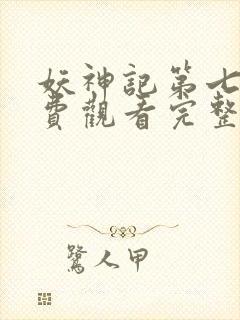 妖神記第七
費觀看完整
鷺人甲